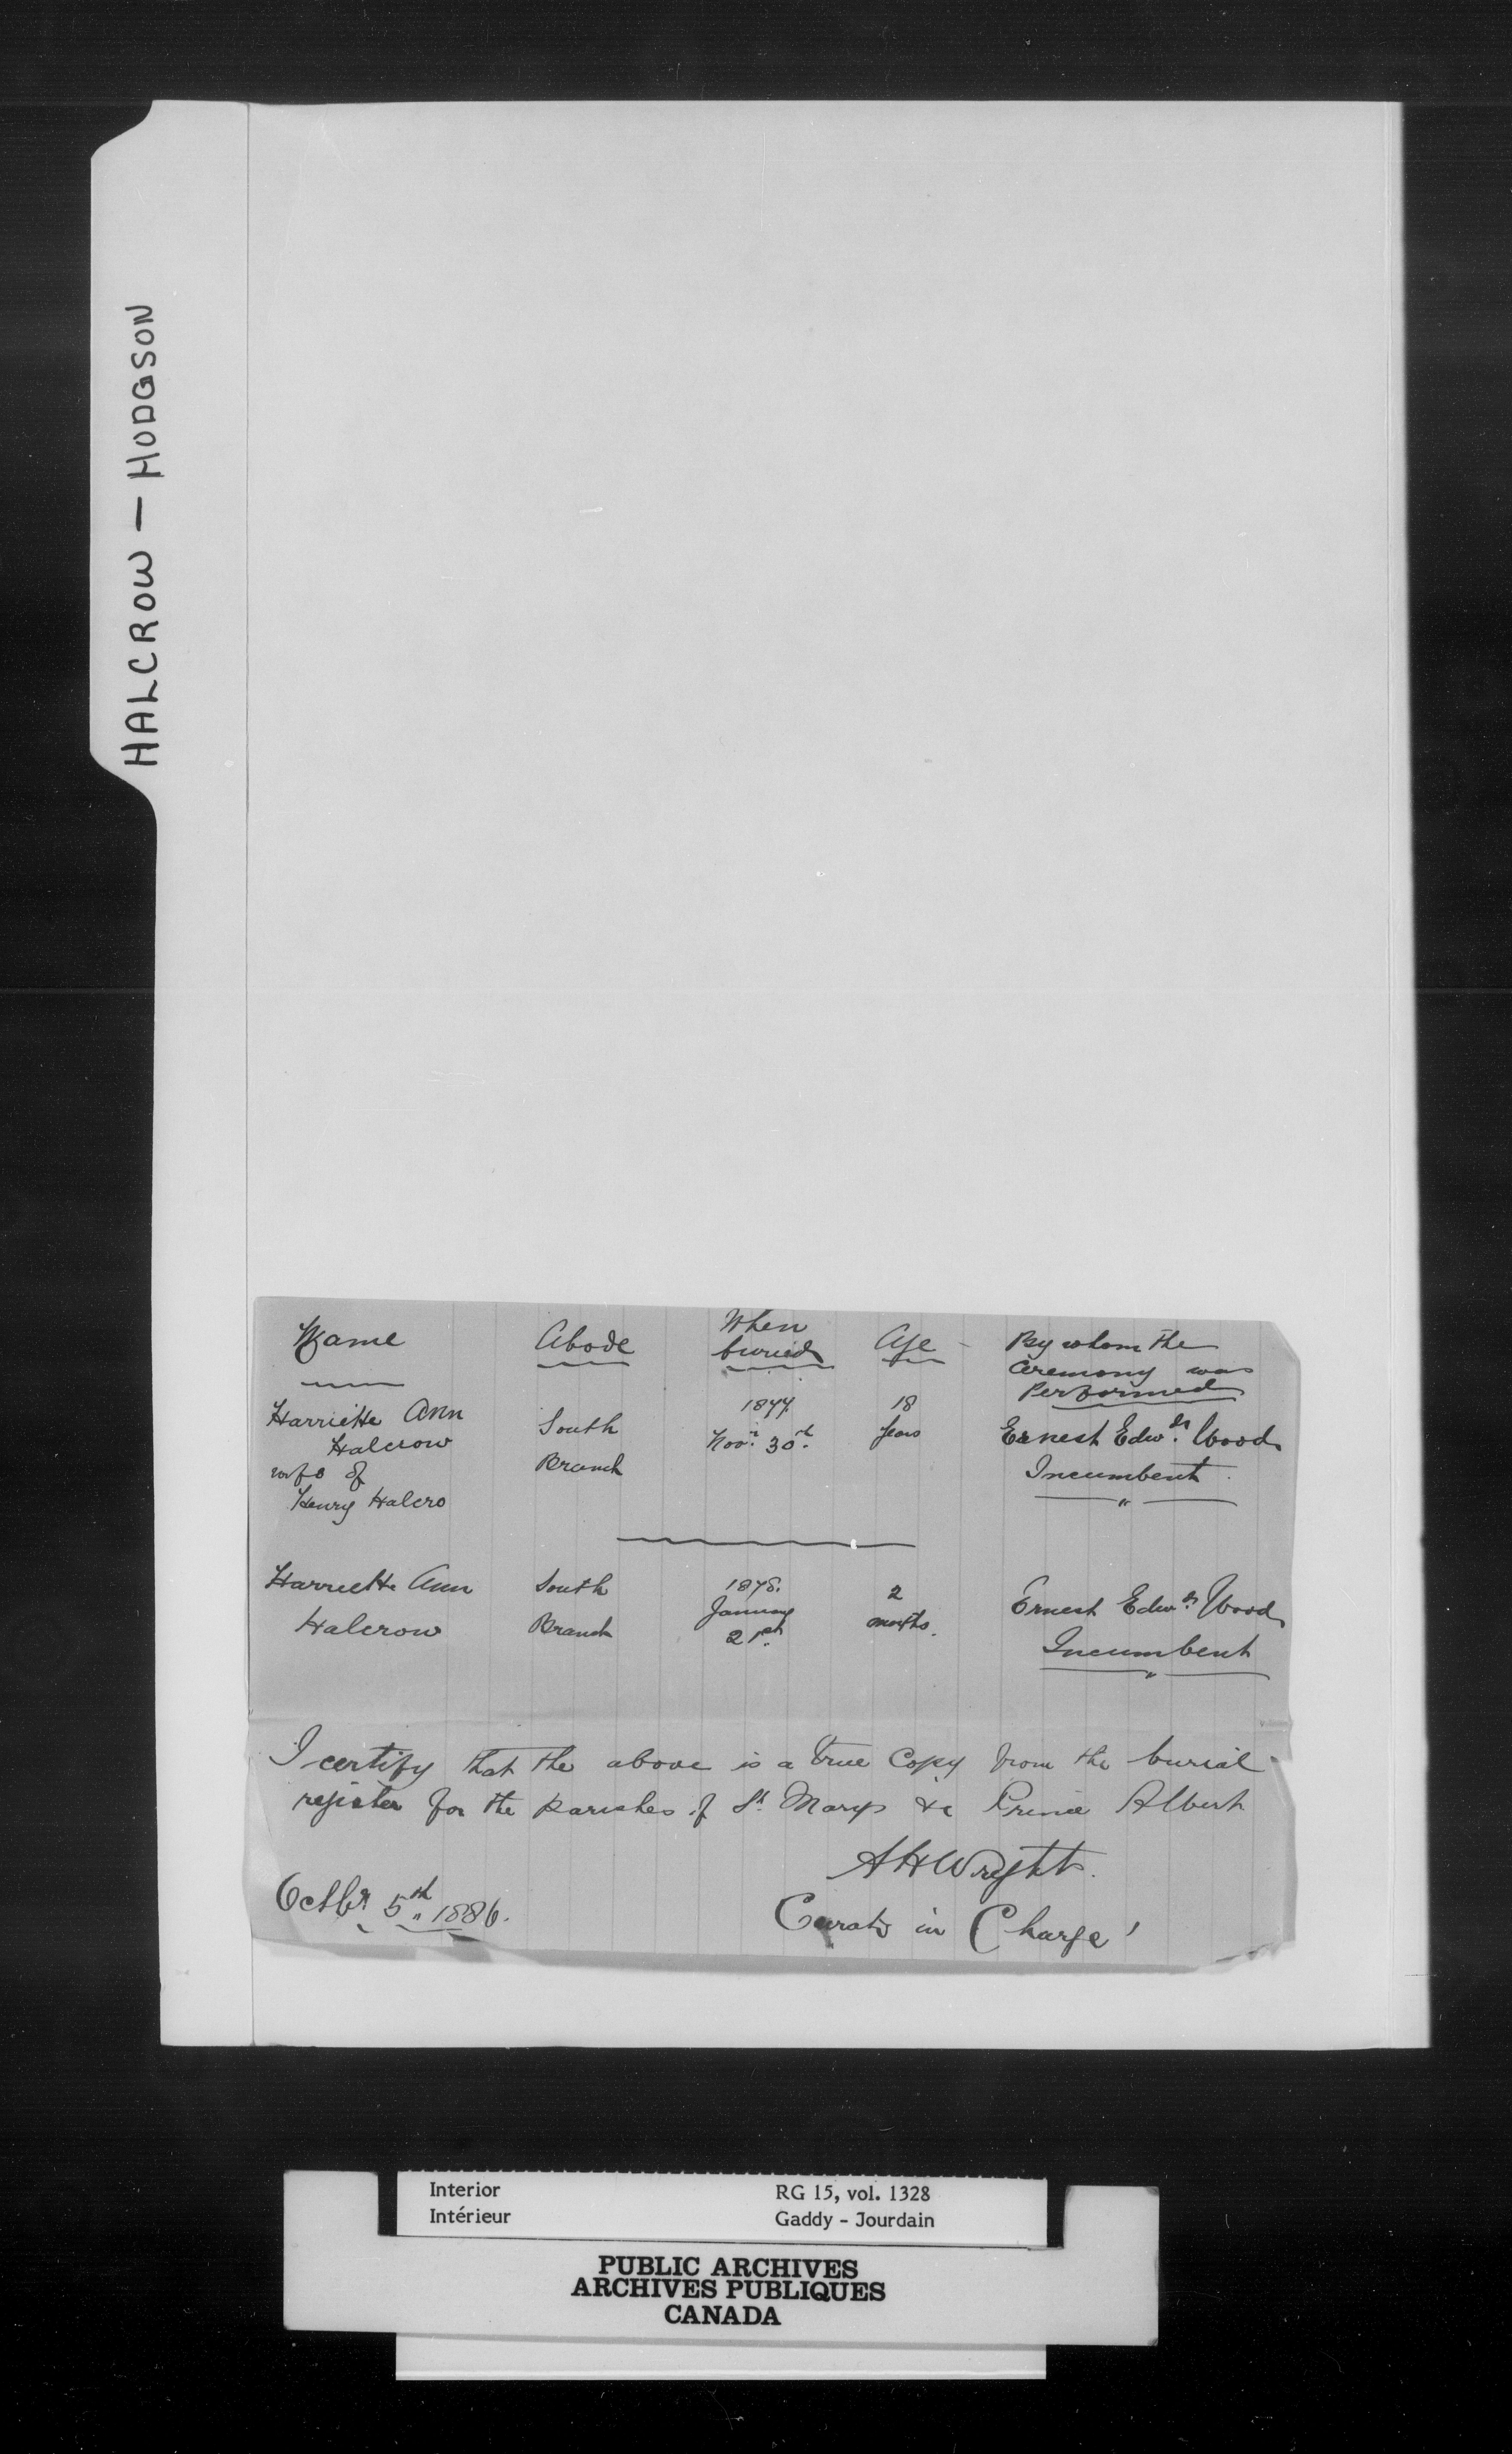 HALCROW — HODGSON
Name Abode When buried Age By whom the
Ceremony was
Performed
Harriette Ann Halcrow wife of Henry Halcro South Branch 1877. Novr. 30th. 18 years Ernest Edwds. Wood Incumbent
Harriette Ann Halcrow South Branch 1878. January 21st. 2 months. Ernest Edwds. Wood Incumbent
I certify that the above is a true Copy from the burial
register for the parishes of St. Marys &c Prince Albert
A H Wright.
Octbr 5th 1886.
Curate in Charge
Interior RG 15, vol. 1328
Intérieur Gaddy - Jourdain
PUBLIC ARCHIVES
ARCHIVES PUBLIQUES
CANADA